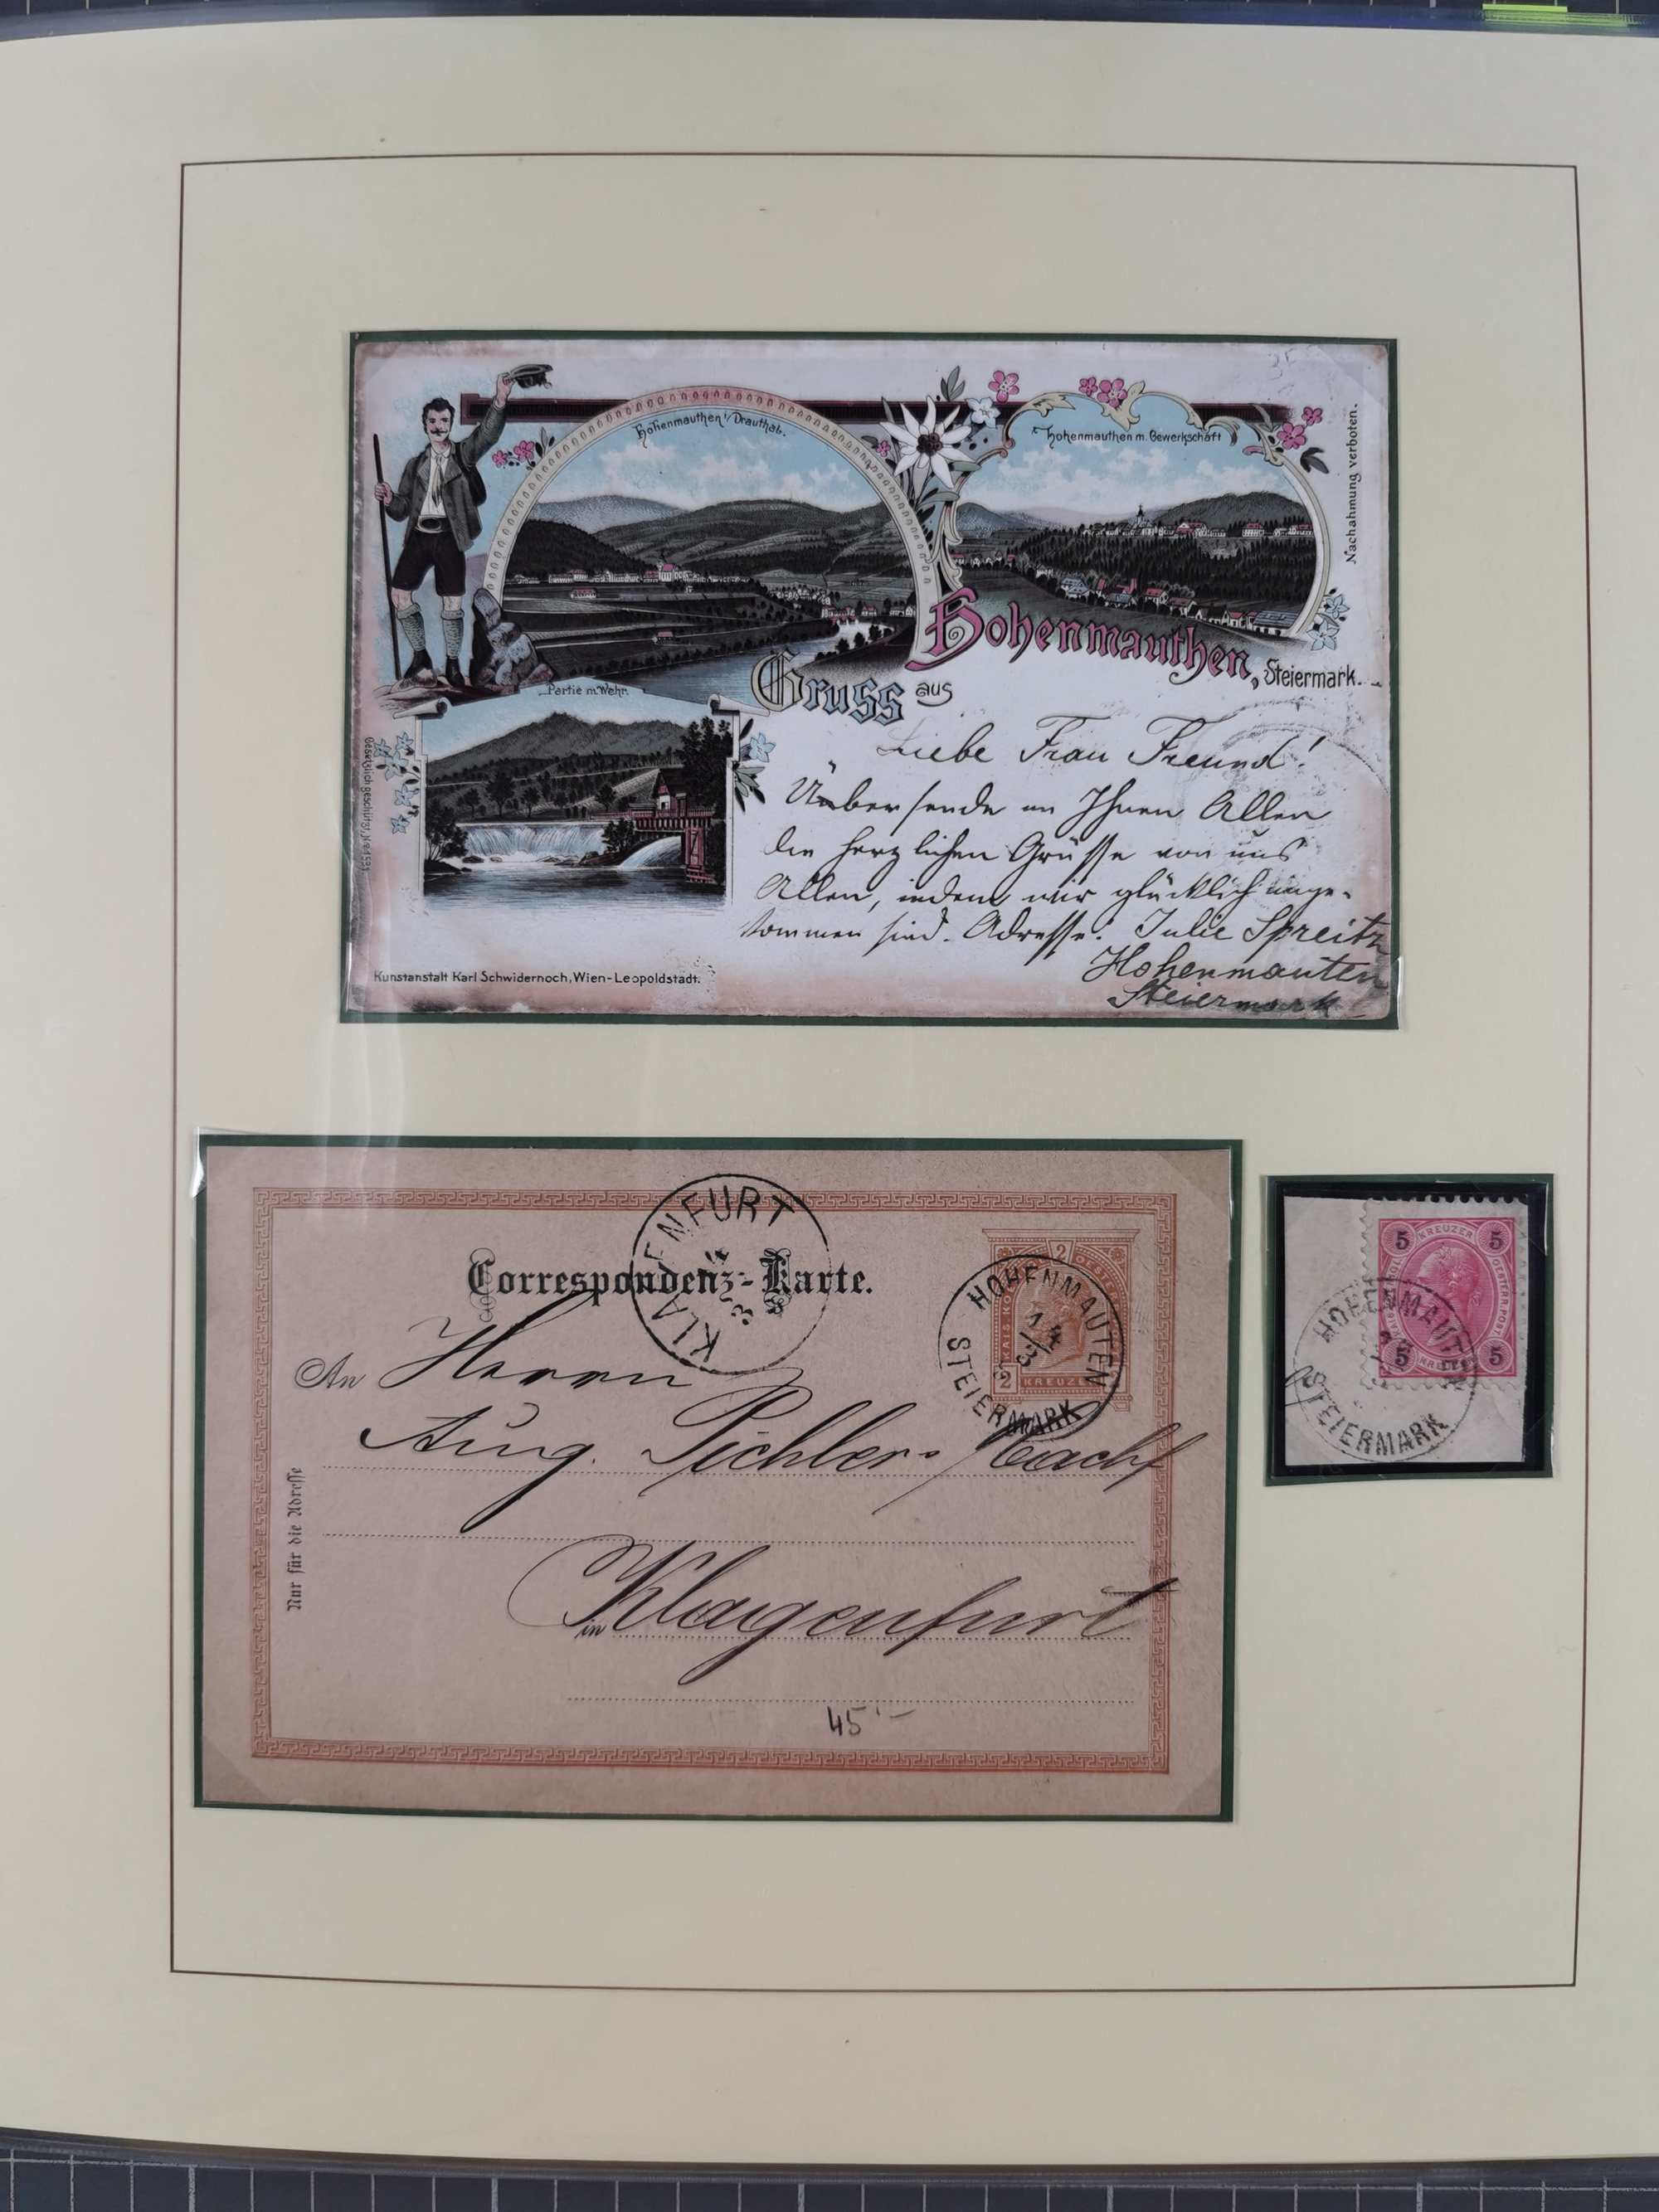 Hohenmauthen i/Drauthal.
Hohenmauthen m. Gewerkschaft
Nachahmung verboten.
Gruss aus Hohenmauthen, Steiermark.
Partie m. Wehr.
Gesetzlich geschützt,
Liebe Frau Freund!
Übersende an Ihnen Allen
die herzlichen Grüsse von uns
Allen, indem wir glücklich ange-
kommen sind. Adresse: Julie Spreitz
Hohenmauten
Steiermark
Kunstanstalt Karl Schwidernoch, Wien-Leopoldstadt.
KLAGENFURT
Correspondenz-Karte.
2
KREUZER
HOHENMAUTEN
STEIERMARK
An Herrn
Aug. Pichlers
Nur für die Adresse
in Klagenfurt
45'-
5 KREUZER 5
5 KREUZER 5
HOHENMAUTEN
STEIERMARK